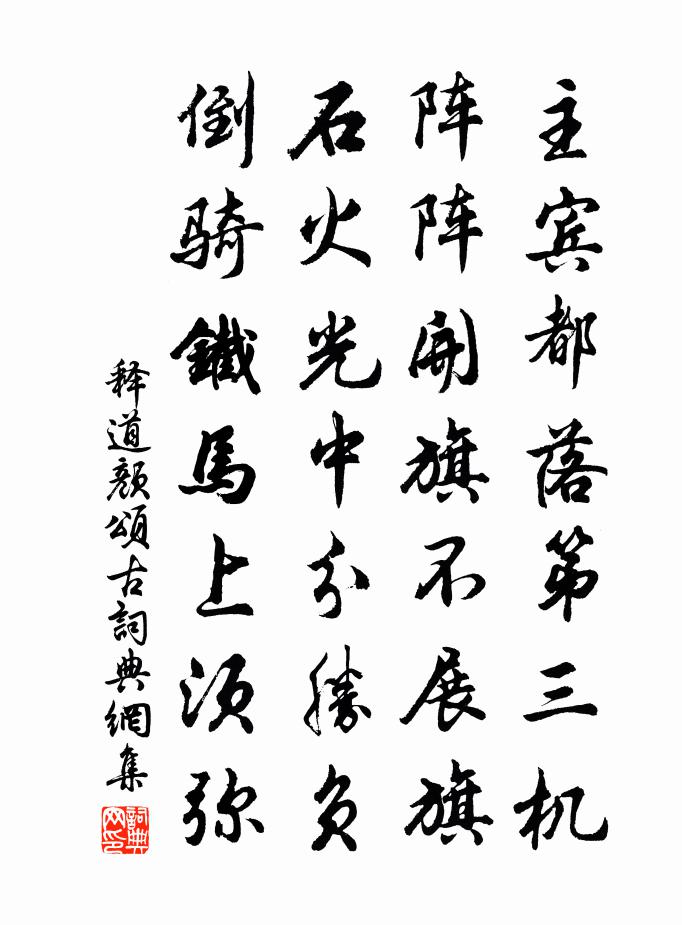 主宾都落第三机
阵阵開旗不展旗
石火光中分勝负
倒骑鐵馬上须弥
释道颜頌古詞典網集
詞典网印